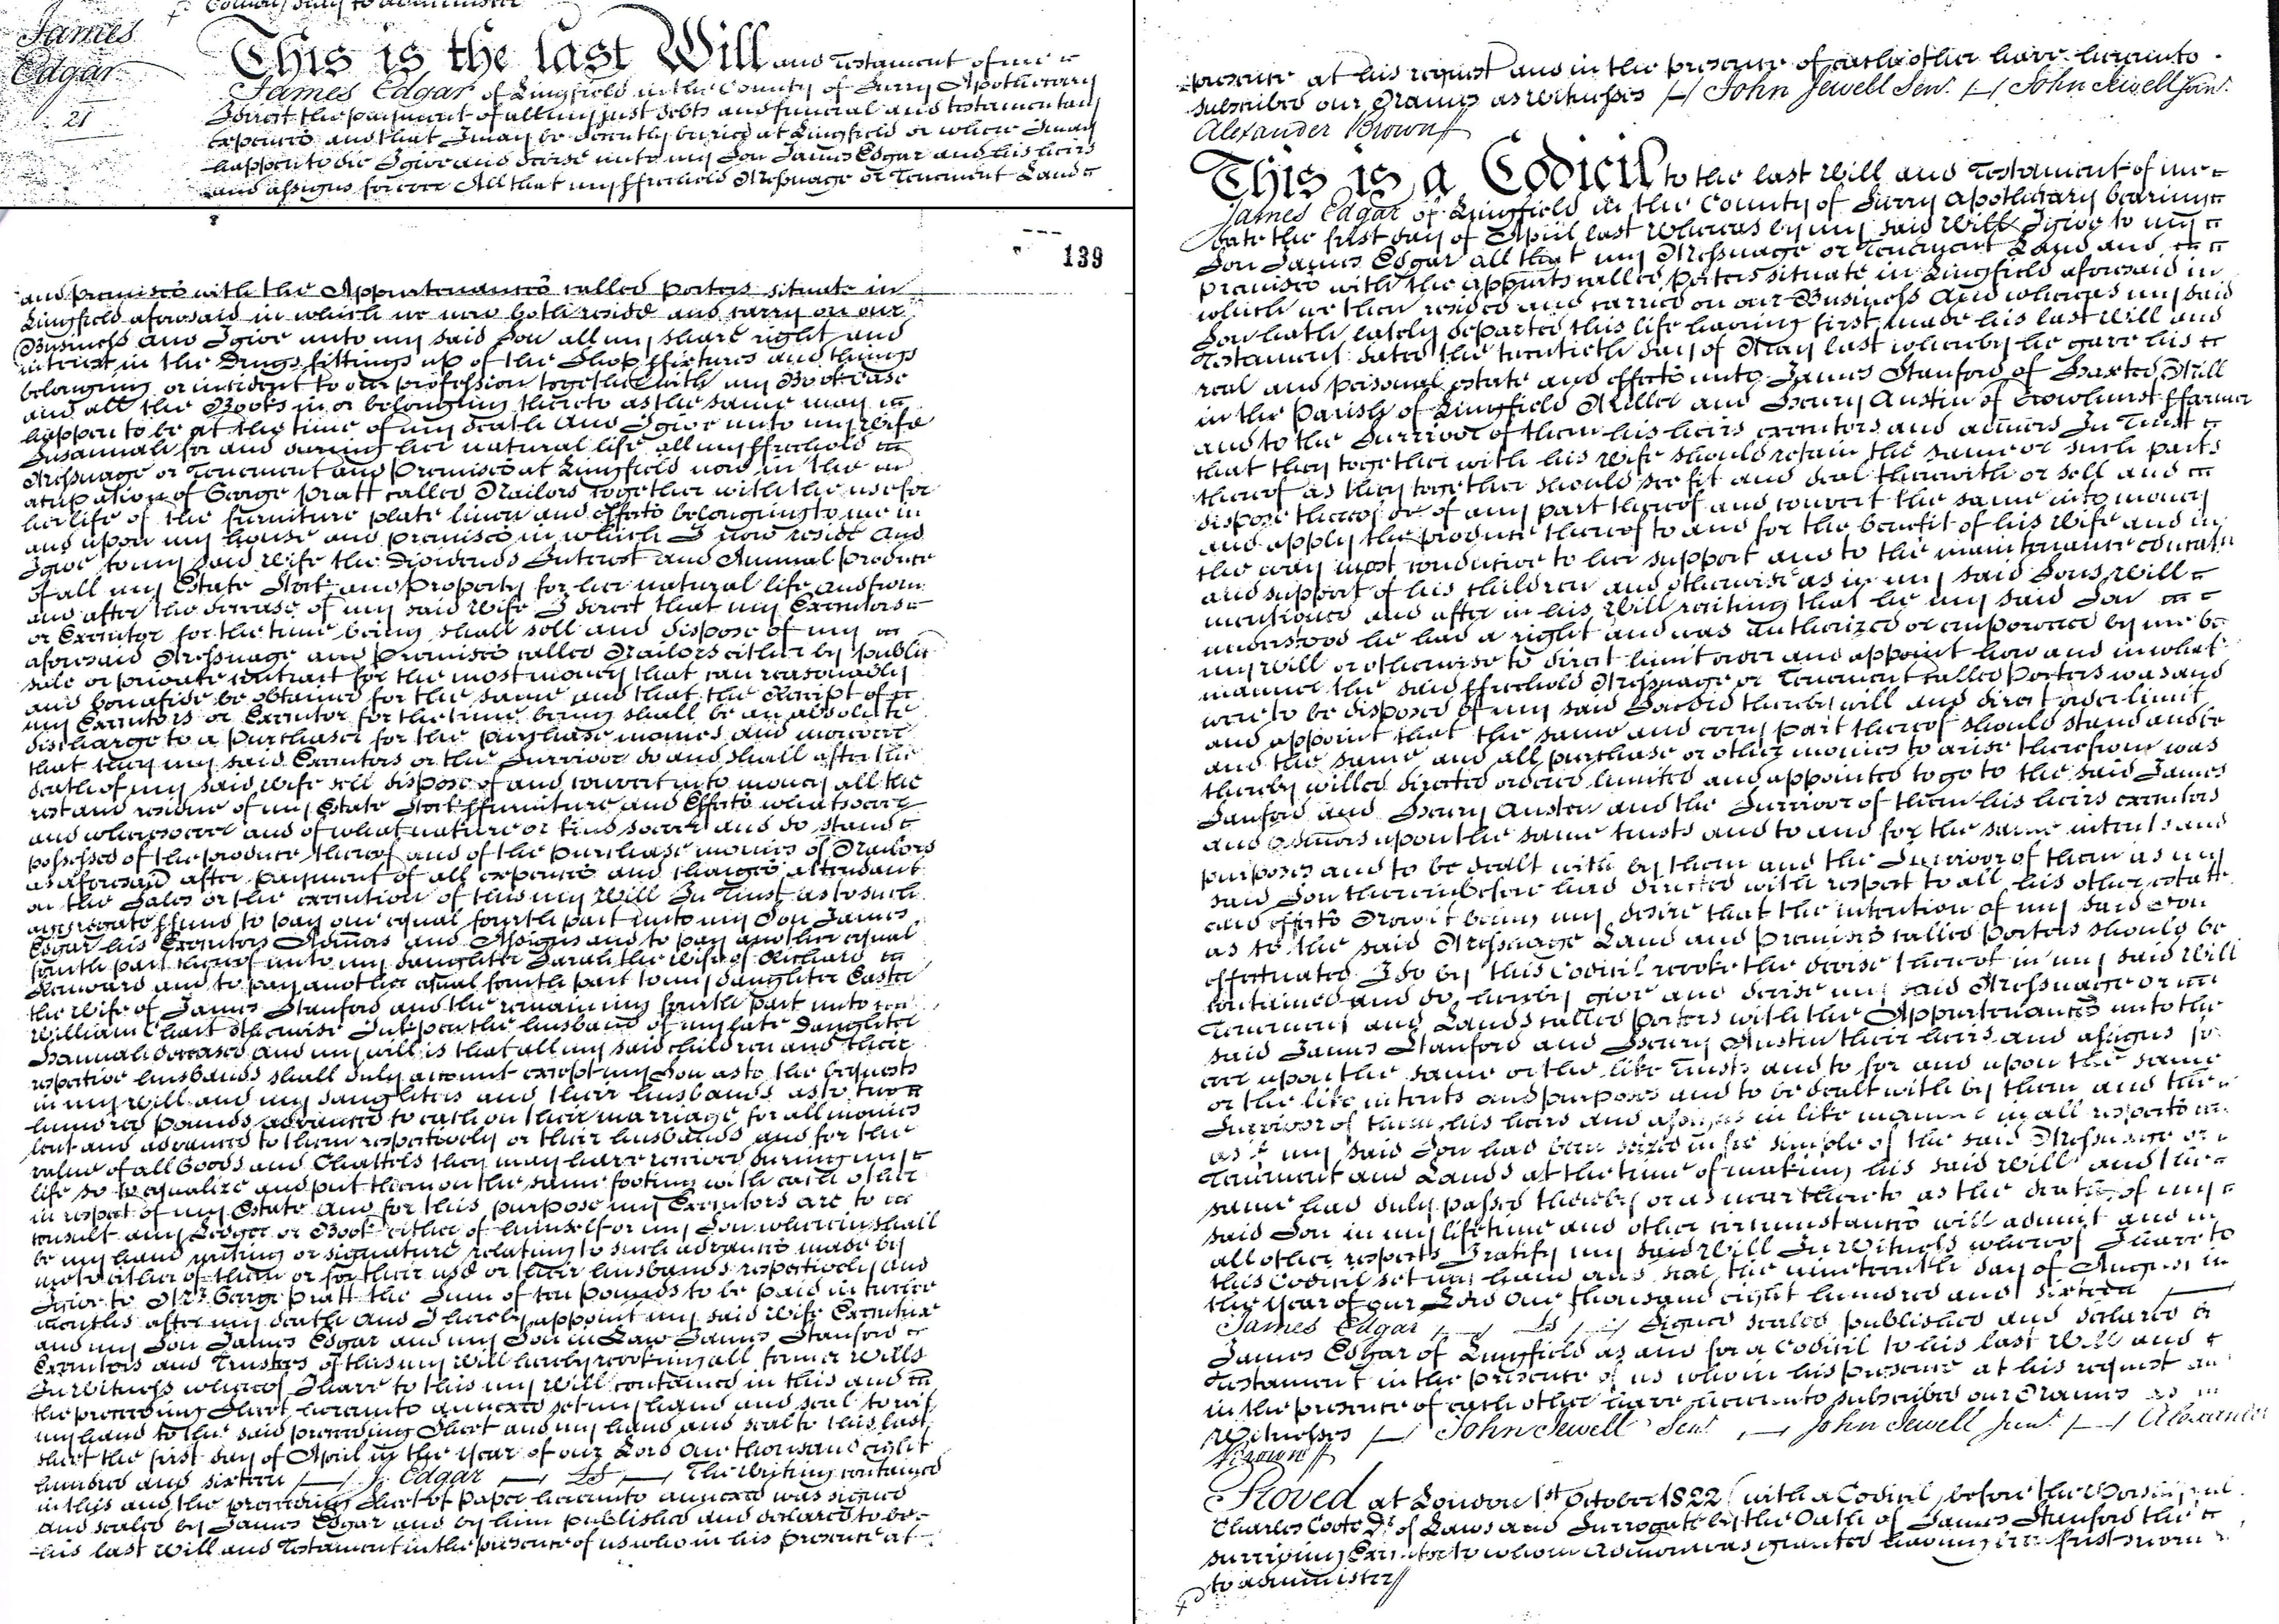 James
Edgar
21
This is the last Will and Testament of me
James Edgar of Lingfield in the County of Surry Apothecary
Direct the payment of all my just debts and funeral and testamentary
expences and that I may be decently buried at Lingfield or where I may
happen to die I give and devise unto my Son James Edgar and his heirs
and assigns for ever All that my ffreehold Messuage or Tenement Land
139
and premises with the Appurtenances called Porters situate in
Lingfield aforesaid in which we now both reside and carry on our
Business And I give unto my said Son all my share right and
interest in the Drugs fittings up of the Shop ffixtures and things
belonging or incident to our profession together with my Bookcase
and all the Books in or belonging thereto as the same may
happen to be at the time of my death And I give unto my Wife
Susannah for and during her natural life all my ffreehold
Messuage or Tenement and Premises at Lingfield now in the
occupation of George Pratt called Nailors together with the use for
her life of the furniture plate linen and effects belonging to me in
and upon my house and premises in which I now reside And
I give to my said Wife the Dividends Interest and Annual produce
of all my Estate Stock and Property for her natural life And from
and after the decease of my said Wife I direct that my Executors
or Executor for the time being shall sell and dispose of my
aforesaid Messuage and Premises called Nailors either by public
sale or private contract for the most money that can reasonably
and bonafide be obtained for the same and that the Receipt of
my Executors or Executor for the time being shall be an absolute
discharge to a purchaser for the purchase monies and moreover
that they my said Executors or the Survivor do and shall after the
death of my said Wife sell dispose of and convert into money all the
rest and residue of my Estate Stock ffurniture and Effects whatsoever
and wheresoever and of what nature or kind soever and do stand
possessed of the produce thereof and of the purchase monies of Nailors
as aforesaid after payment of all expences and charges attendant
on the Sales or the execution of this my Will In Trust as to such
aggregate ffund to pay one equal fourth part unto my Son James
Edgar his Executors Admors and Assigns and to pay another equal
fourth part thereof unto my daughter Sarah the Wife of Richard
and to pay another equal fourth part to my daughter Easter
the Wife of James Stanford and the remaining fourth part unto
William Chart otherwise the husband of my late Daughter
Hannah deceased and my will is that all my said children and their
respective husbands shall duly account except my Son as to the bequests
in my Will and my daughters and their husbands as to two
hundred pounds advanced to each on their marriage for all monies
lent and advanced to them respectively or their husbands and for the
value of all Goods and Chattels they may have received during my
life so to equalize and put them on the same footing with each other
in respect of my Estate And for this purpose my Executors are to
consult any Ledger or Book either of himself or my Son wherein shall
be my hand writing or signature relating to such advances made by
me to either of them or for their use or their husbands respectively And
I give to Mrs George Pratt the Sum of ten pounds to be paid in twelve
months after my death And I hereby appoint my said Wife Executrix
and my Son James Edgar and my Son in Law James Stanford
Executors and Trustees of this my Will hereby revoking all former Wills
In Witness whereof I have to this my Will contained in this and
the preceding Sheet hereunto annexed set my hand and seal to wit
my hand to the said preceding Sheet and my hand and seal to this last
sheet the first day of April in the Year of our Lord One thousand eight
hundred and sixteen J. Edgar LS The Writing contained
in this and the preceding Sheet of Paper hereunto annexed was signed
and sealed by James Edgar and by him published and declared to be
his last Will and Testament in the presence of us who in his presence at
presence at his request and in the presence of each other have hereunto
subscribed our Names as Witnesses John Jewell Senr. John Jewell Junr.
Alexander Brown
This is a Codicil to the last Will and Testament of me
James Edgar of Lingfield in the County of Surry Apothecary bearing
date the first day of April last Whereas by my said Will I give to my
Son James Edgar all that my Messuage or Tenement Land and
premises with the appurts called Porters situate in Lingfield aforesaid in
which we then resided and carried on our Business And whereas my said
Son hath lately departed this life having first made his last Will and
Testament dated the twentieth day of May last whereby he gave his
real and personal estate and effects unto James Stanford of Haxted Mill
in the Parish of Lingfield Miller and Henry Austin of Crowhurst ffarmer
and to the Survivor of them his heirs executors and admors In Trust
that they together with his Wife should retain the same or such parts
thereof as they together should see fit and deal therewith or sell and
dispose thereof or of any part thereof and convert the same into money
and apply the produce thereof to and for the benefit of his Wife and in
the way most conducive to her support and to the maintenance
and support of his children and otherwise as in my said Sons Will
mentioned and after in his Will reciting that he my said Son
understood he had a right and was authorized or empowered by me by
my Will or otherwise to direct limit order and appoint how and in what
manner the said ffreehold Messuage or Tenement called Porters was and
were to be disposed of my said Son did thereby will and direct order limit
and appoint that the same and every part thereof should stand and be
and the same and all purchase or other monies to arise therefrom was
thereby willed directed ordered limited and appointed to go to the said James
Stanford and Henry Austen and the Survivor of them his heirs executors
and Admors upon the same trusts and to and for the same intents and
purposes and to be dealt with by them and the Survivor of them as my
said Son thereinbefore had directed with respect to all his other estate
and effects Now it being my desire that the intention of my said Son
as to the said Messuage Land and Premises called Porters should be
effectuated I do by this Codicil revoke the devise thereof in my said Will
contained and do hereby give and devise my said Messuage or
Tenement and Lands called Porters with the Appurtenances unto the
said James Stanford and Henry Austin their heirs and assigns for
ever upon the same or the like trusts and to for and upon the same
or the like intents and purposes and to be dealt with by them and the
Survivor of them his heirs and assigns in like manner in all respects
as if my said Son had been seized in fee simple of the said Messuage or
Tenement and Lands at the time of making his said Will and the
same had duly passed thereby or as near thereto as the death of my
said Son in my lifetime and other circumstances will admit and in
all other respects I ratify my said Will In Witness whereof I have to
this Codicil set my hand and seal the nineteenth day of August in
the Year of our Lord One thousand eight hundred and sixteen
James Edgar LS Signed sealed published and declared
James Edgar of Lingfield as and for a Codicil to his last Will and
Testament in the presence of us who in his presence at his request and
in the presence of each other have hereunto subscribed our Names as
Witnesses John Jewell Senr. John Jewell Junr. Alexander
Brown
Proved at London 1st October 1822 with a Codicil before the Worshipful
Charles Coote Dr. of Laws and Surrogate by the Oath of James Stanford the
surviving Executor to whom Admon was granted having been first sworn
to administer